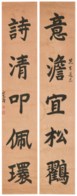 意澹宜松鶴
詩清叩佩環